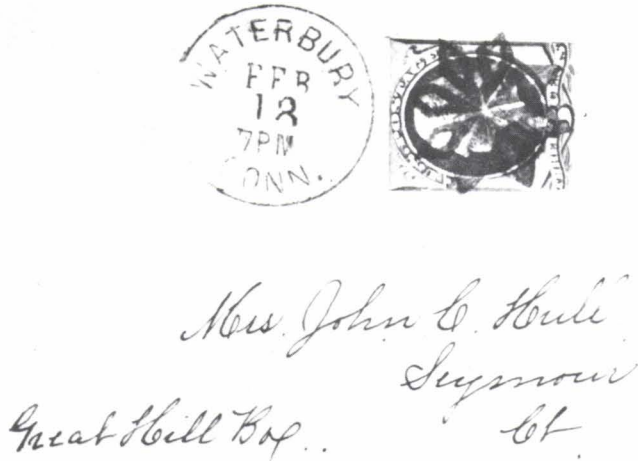 WATERBURY
FEB
12
7PM
CONN.
Mrs. John C. Hull
Seymour
Great Hill Box..
Ct.